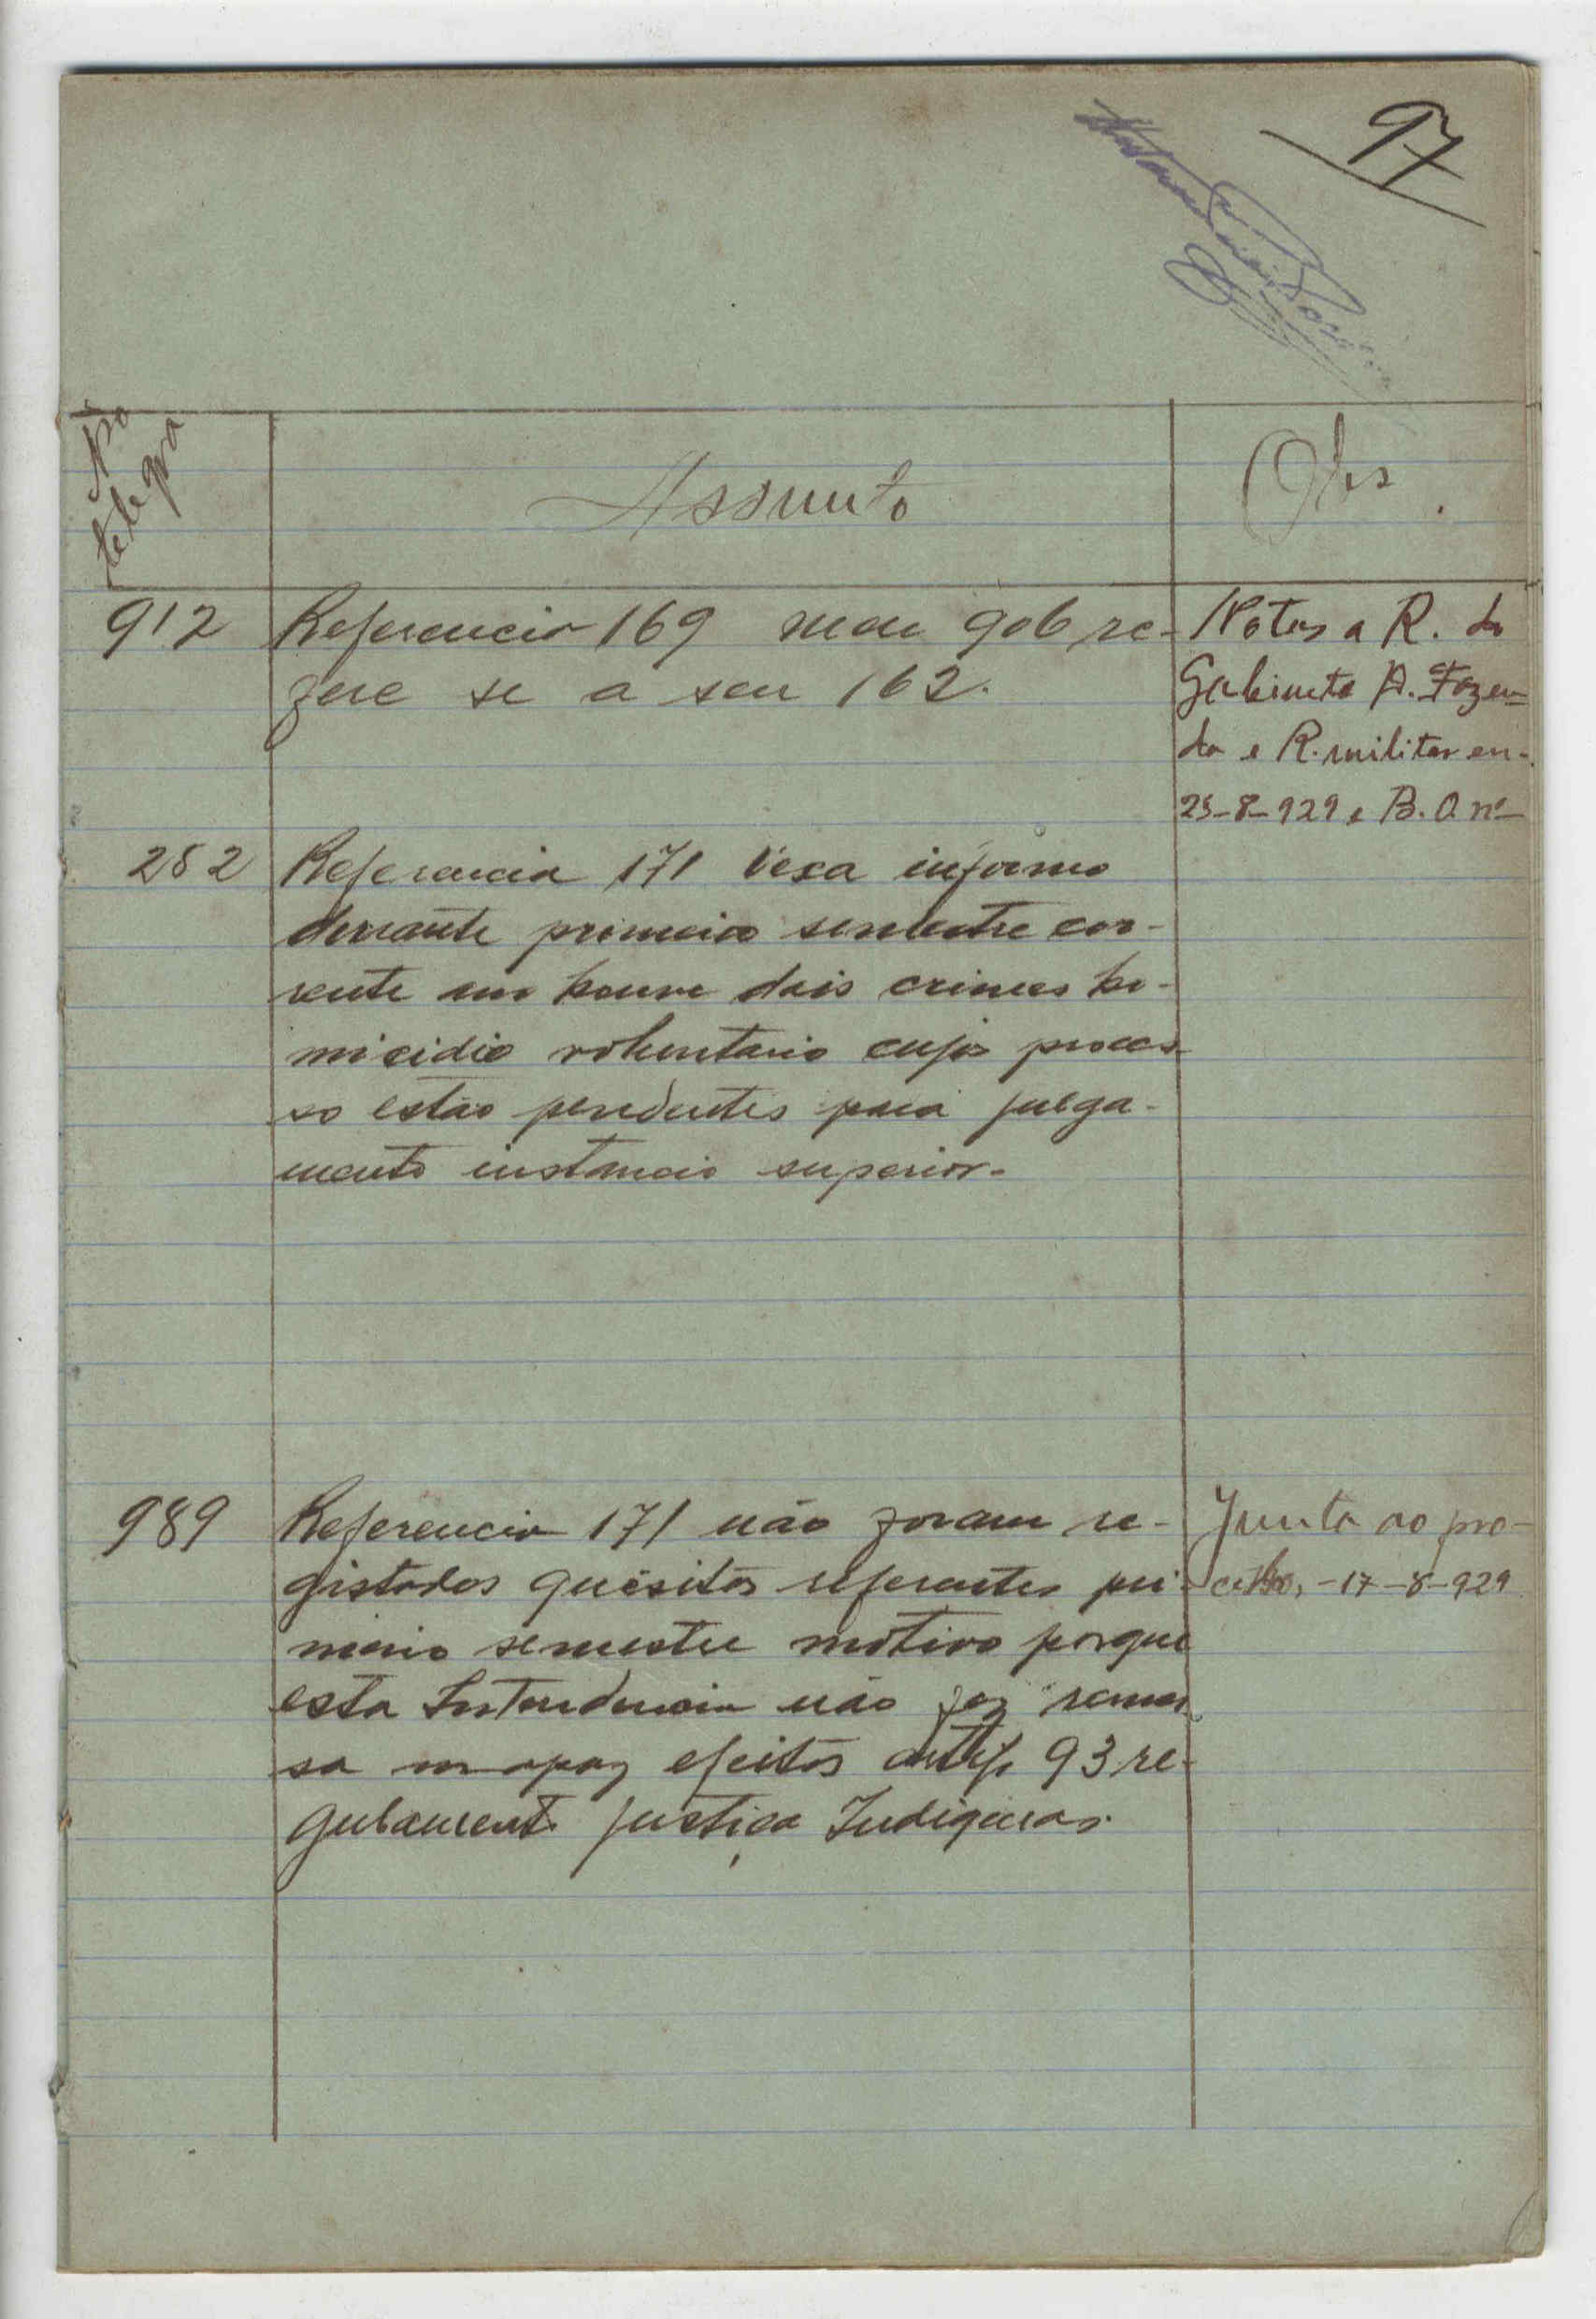 97
No telegra
Assunto
Obs.
912
Referencia 169 meu 906 re-
fere se a seu 162.
Notas a R. do
Gabinete D. Fazen-
da e R. militar en-
23-8-929 e B. O. nº
282
Referencia 171 Vexa informo
durante primeiro semestre cor-
rente ano houve dois crimes ho-
micidio voluntario cujos proces-
so estão pendentes para julga-
mento instancia superior.
989
Referencia 171 não foram re-
gistados quesitos referentes pri-
meiro semestre motivo porque
esta Intendencia não faz remes
sa mapas efeitos artigo 93 re-
gulamento justiça Indigenas.
Junto ao pro-
cesso, -17-8-929